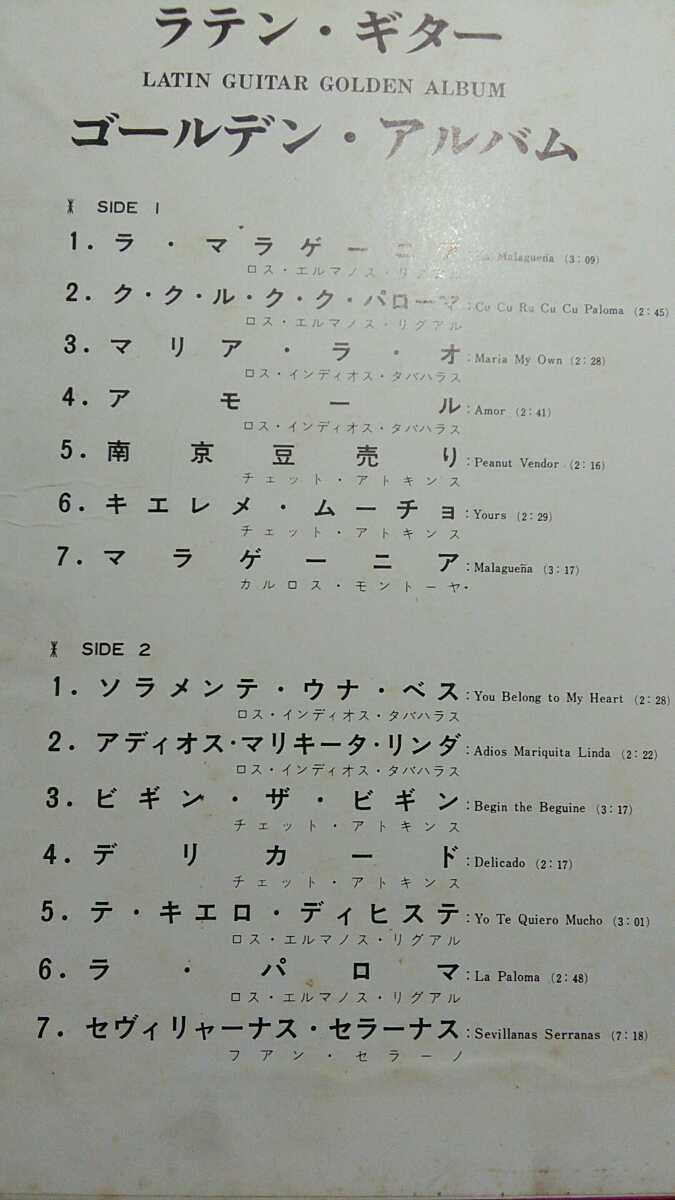 ラテン・ギター
LATIN GUITAR GOLDEN ALBUM
ゴールデン・アルバム
SIDE 1
1. ラ・マラゲーニア : Malagueña (3:09)
ロス・エルマノス・リグアル
2. ク・ク・ル・ク・ク・パローマ : Cu Cu Ru Cu Cu Paloma (2:45)
ロス・エルマノス・リグアル
3. マリア・ラ・オ : Maria My Own (2:28)
ロス・インディオス・タバハラス
4. アモール : Amor (2:41)
ロス・インディオス・タバハラス
5. 南京豆売り : Peanut Vendor (2:16)
チェット・アトキンス
6. キエレメ・ムーチョ : Yours (2:29)
チェット・アトキンス
7. マラゲーニア : Malagueña (3:17)
カルロス・モントーヤ・
SIDE 2
1. ソラメンテ・ウナ・ベス : You Belong to My Heart (2:28)
ロス・インディオス・タバハラス
2. アディオス・マリキータ・リンダ : Adios Mariquita Linda (2:22)
ロス・インディオス・タバハラス
3. ビギン・ザ・ビギン : Begin the Beguine (3:17)
チェット・アトキンス
4. デリカード : Delicado (2:17)
チェット・アトキンス
5. テ・キエロ・ディヒステ : Yo Te Quiero Mucho (3:01)
ロス・エルマノス・リグアル
6. ラ・パロマ : La Paloma (2:48)
ロス・エルマノス・リグアル
7. セヴィリャーナス・セラーナス : Sevillanas Serranas (7:18)
フアン・セラーノ